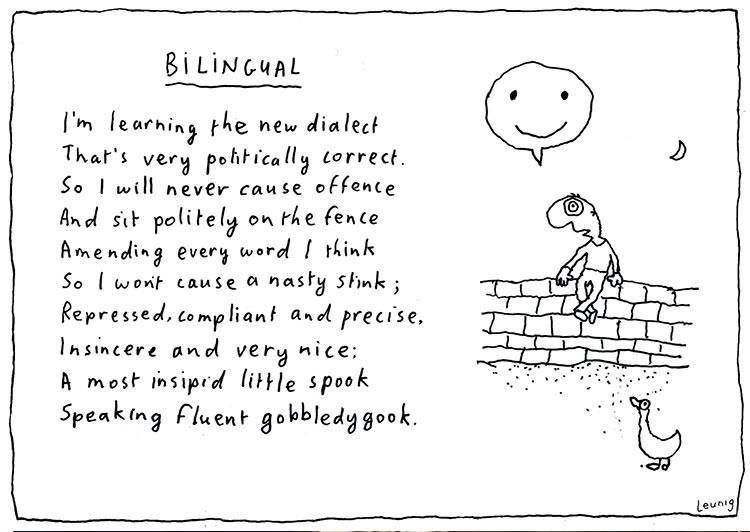 BiLiNGUAL
I'm learning the new dialect
That's very politically correct.
So I will never cause offence
And sit politely on the fence
Amending every word I think
So I won't cause a nasty stink;
Repressed, compliant and precise,
Insincere and very nice;
A most insipid little spook
Speaking fluent gobbledygook.
Leunig